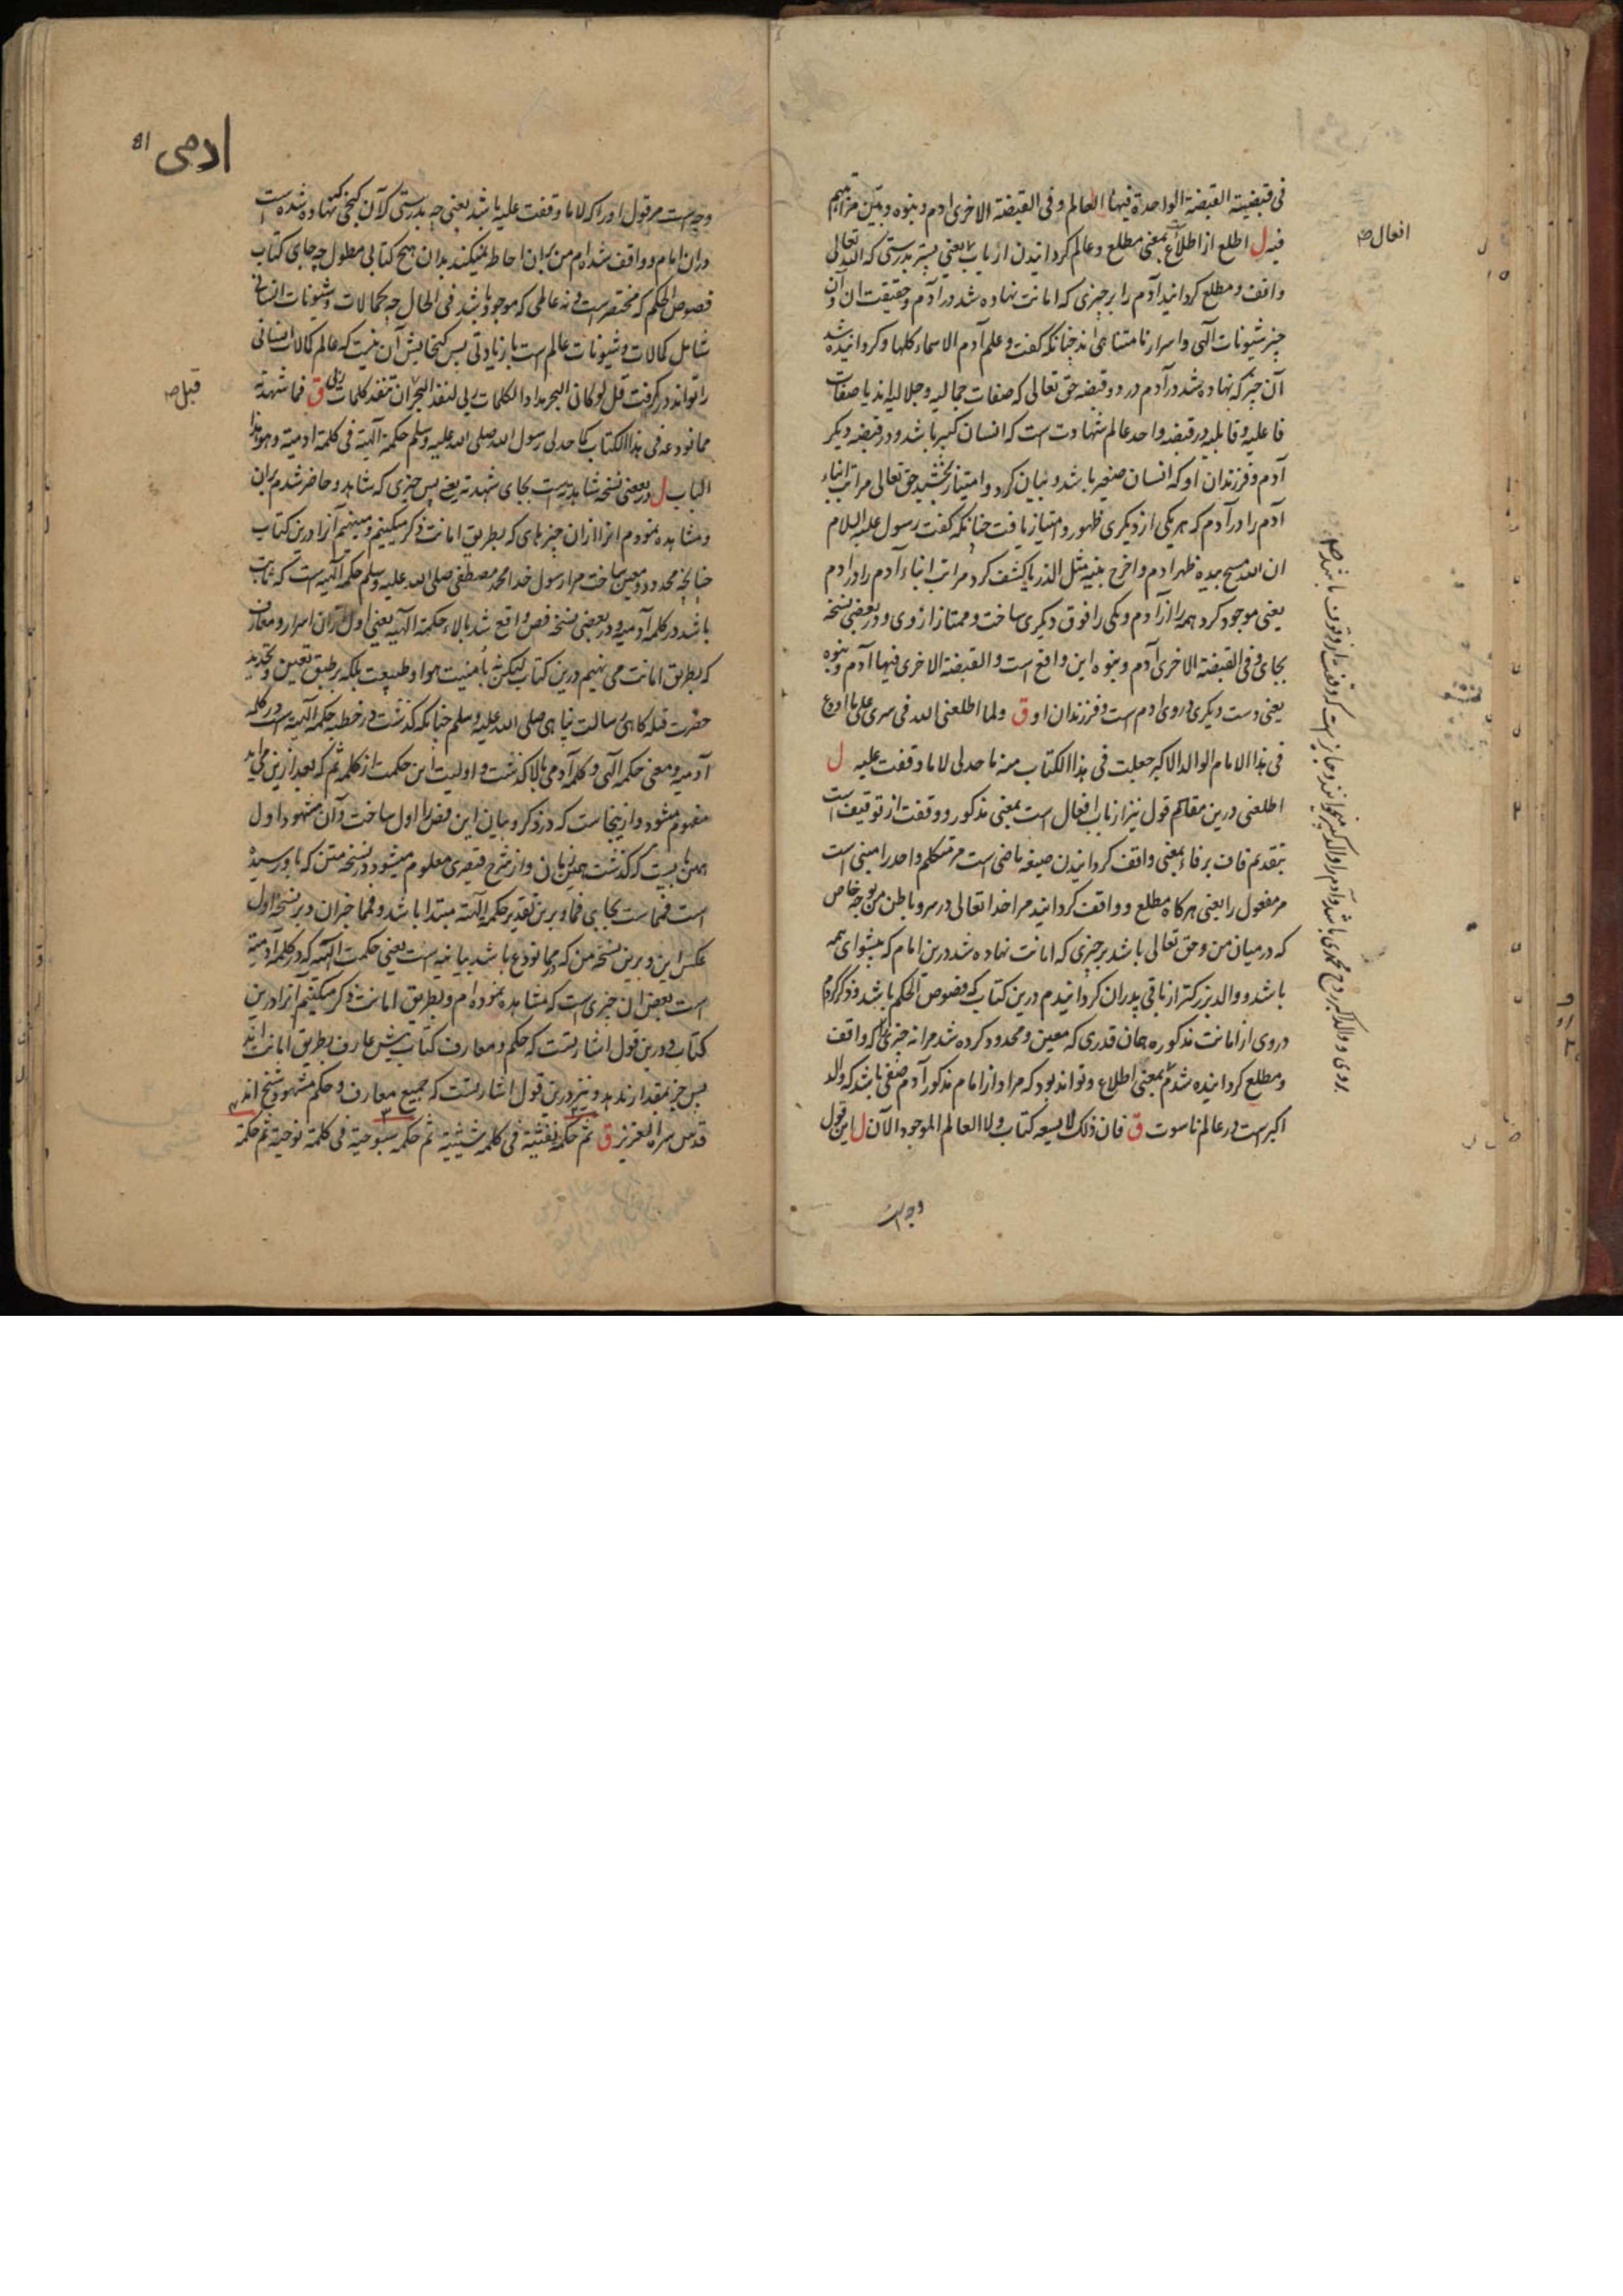 فی قبضیته القبضة الواحدة فیها العالم و فی القبضة الاخری ادم و بنوه و بین مراتبهم
فیه ل اطلع از اطلاع بمعنی مطلع و عالم کردانیدن از باب یعنی پستر بدرستی که الله تعالی
واقف و مطلع کردانید آدم را بر چیزی که امانت نهاده شد در آدم و حقیقت ان و آن
چیز شیونات الهی و اسرار نامتناهی اند چنانکه کفت و علم آدم الاسماء کلها و کردانیده شد
آن چیز که نهاده شد در آدم در دو قبضه حق تعالی که صفات جمالیه و جلالیه اند یا صفات
فاعلیه و قابلیه در قبضه واحد عالم شهادت است که انسان کبیر باشد و در قبضه دیکر
آدم و فرزندان او که انسان صغیر باشد و بیان کرد و امتیاز بخشید حق تعالی مراتب ابناء
آدم را در آدم که هر یکی از دیکری ظهور و امتیاز یافت چنانکه کفت رسول علیه السلام
ان الله مسح بیده ظهر ادم و اخرج بنیه مثل الذر یا کشف کرد مراتب ابناء آدم را در ادم
یعنی موجود کرد همه را از آدم و یکی را فوق دیکری ساخت و ممتاز از وی و در بعضی نسخه
بجای و فی القبضة الاخری آدم و بنوه این واقع است و القبضة الاخری فیها آدم و بنوه
یعنی دست دیکری در وی ادم است و فرزندان او ق و لما اطلعنی الله فی سری علی ما اودع
فی هذا الامام الوالد الاکبر جعلت فی هذا الکتاب منه ما حد لی لا ما وقفت علیه ل
اطلعنی درین مقام قول نیز از باب افعال است بمعنی مذکور و وقفت از توقیف است
بتقدیم قاف بر فاء بمعنی واقف کردانیدن صیغه ماضی است مر متکلم واحد را مبنی است
مر مفعول را یعنی هرکاه مطلع و واقف کردانید مرا خدا تعالی در سر و باطن من بوجه خاص
که در میان من و حق تعالی باشد بر چیزی که امانت نهاده شد درین امام که پیشوای همه
باشد و والد بزرکتر از باقی پدران کردانیدم درین کتاب که فصوص الحکم باشد و ذکر کردم
در وی از امانت مذکوره همان قدری که معین و محدود کرده شد مرا نه چیزی را که واقف
و مطلع کردانیده شدم بمعنی اطلاع و تواند بود که مراد از امام مذکور آدم صفی باشد که والد
اکبر است در عالم ناسوت ق فان ذلک لا یسعه کتاب و لا العالم الموجود الآن ل این قول
وجه است
افعال صح
ادمی 81
وجه است مر قول او را که لا ما وقفت علیه باشد یعنی چه بدرستی که آن کنجی که نهاده شده است
در ان امام و واقف شده ام من بران احاطه نمیکند بدان هیچ کتابی مطول چه جای کتاب
فصوص الحکم که مختصر است و نه عالمی که موجود باشد فی الحال چه کمالات و شیونات انسانی
شامل کمالات و شیونات عالم است با زیادتی پس کنجایش آن نیست که عالم کمالات انسانی
را تواند در کرفت قل لو کان البحر مدادا لکلمات ربی لنفد البحر قبل ان تنفد کلمات ربی ق فما شهدته
مما نودعه فی هذا الکتاب کما حد لی رسول الله صلی الله علیه و سلم حکمة آلهیة فی کلمة ادمیة و هو هذا
الباب ل در بعضی نسخه شاهدته است بجای شهدته یعنی پس چیزی که شاهد و حاضر شدم بران
و مشاهده نمودم انرا از ان چیزهای که بطریق امانت ذکر میکنیم و مینهیم آنرا درین کتاب
چنانچه محدود و معین ساخت مرا رسول خدا محمد مصطفی صلی الله علیه و سلم حکمة آلهیة است که ثابت
باشد در کلمه آدمیه و در بعضی نسخه فص واقع شد بالاء حکمة الهیة یعنی اول از ان اسرار و معارف
که بطریق امانت می نهیم درین کتاب لیکن نه بأمنیت هوا و طبیعت بلکه بر طبق تعین و تحدید
حضرت قبله کاهی رسالت پناهی صلی الله علیه و سلم چنانکه کذشت در خطبه حکمة آلهیة است در کلمه
آدمیه و معنی حکمه الهی و کلمه آدمی بالا کذشت و اولیت این حکمت از کلمه ثم که بعد ازین می آید
مفهوم میشود و ازینجاست که در ذکر و بیان این فص را اول ساخت و آن مشهود اول
همین بابیست که کذشت همین زمان و از شرح قیصری معلوم میشود در نسخه متن که باو رسیده
است فمما است بجای فما و برین تقدیر حکمة الهیة مبتدا باشد و فمما خبر ان و بر نسخه اول
عکس این و برین نسخه من که در مما نودع باشد بیانیه است یعنی حکمت الهیه که در کلمه آدمیة
است بعض ان چیزی است که مشاهده نموده ام و بطریق امانت ذکر میکنیم آنرا درین
کتاب و درین قول اشارتست که حکم و معارف کتاب پیش عارف بطریق امانت اند
پس جز بمقدار ندهد و نیز درین قول اشارتست که جمیع معارف و حکم مشهود شیخ اند
قدس سره العزیز ق ثم حکمة نفثیة فی کلمه شیثیة ثم حکمه سبوحیة فی کلمة نوحیة ثم حکمة
قبل صح